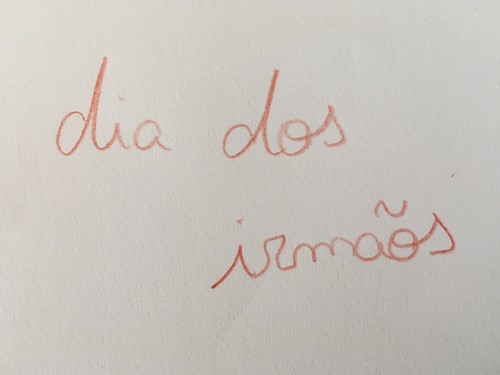 dia dos
irmãos